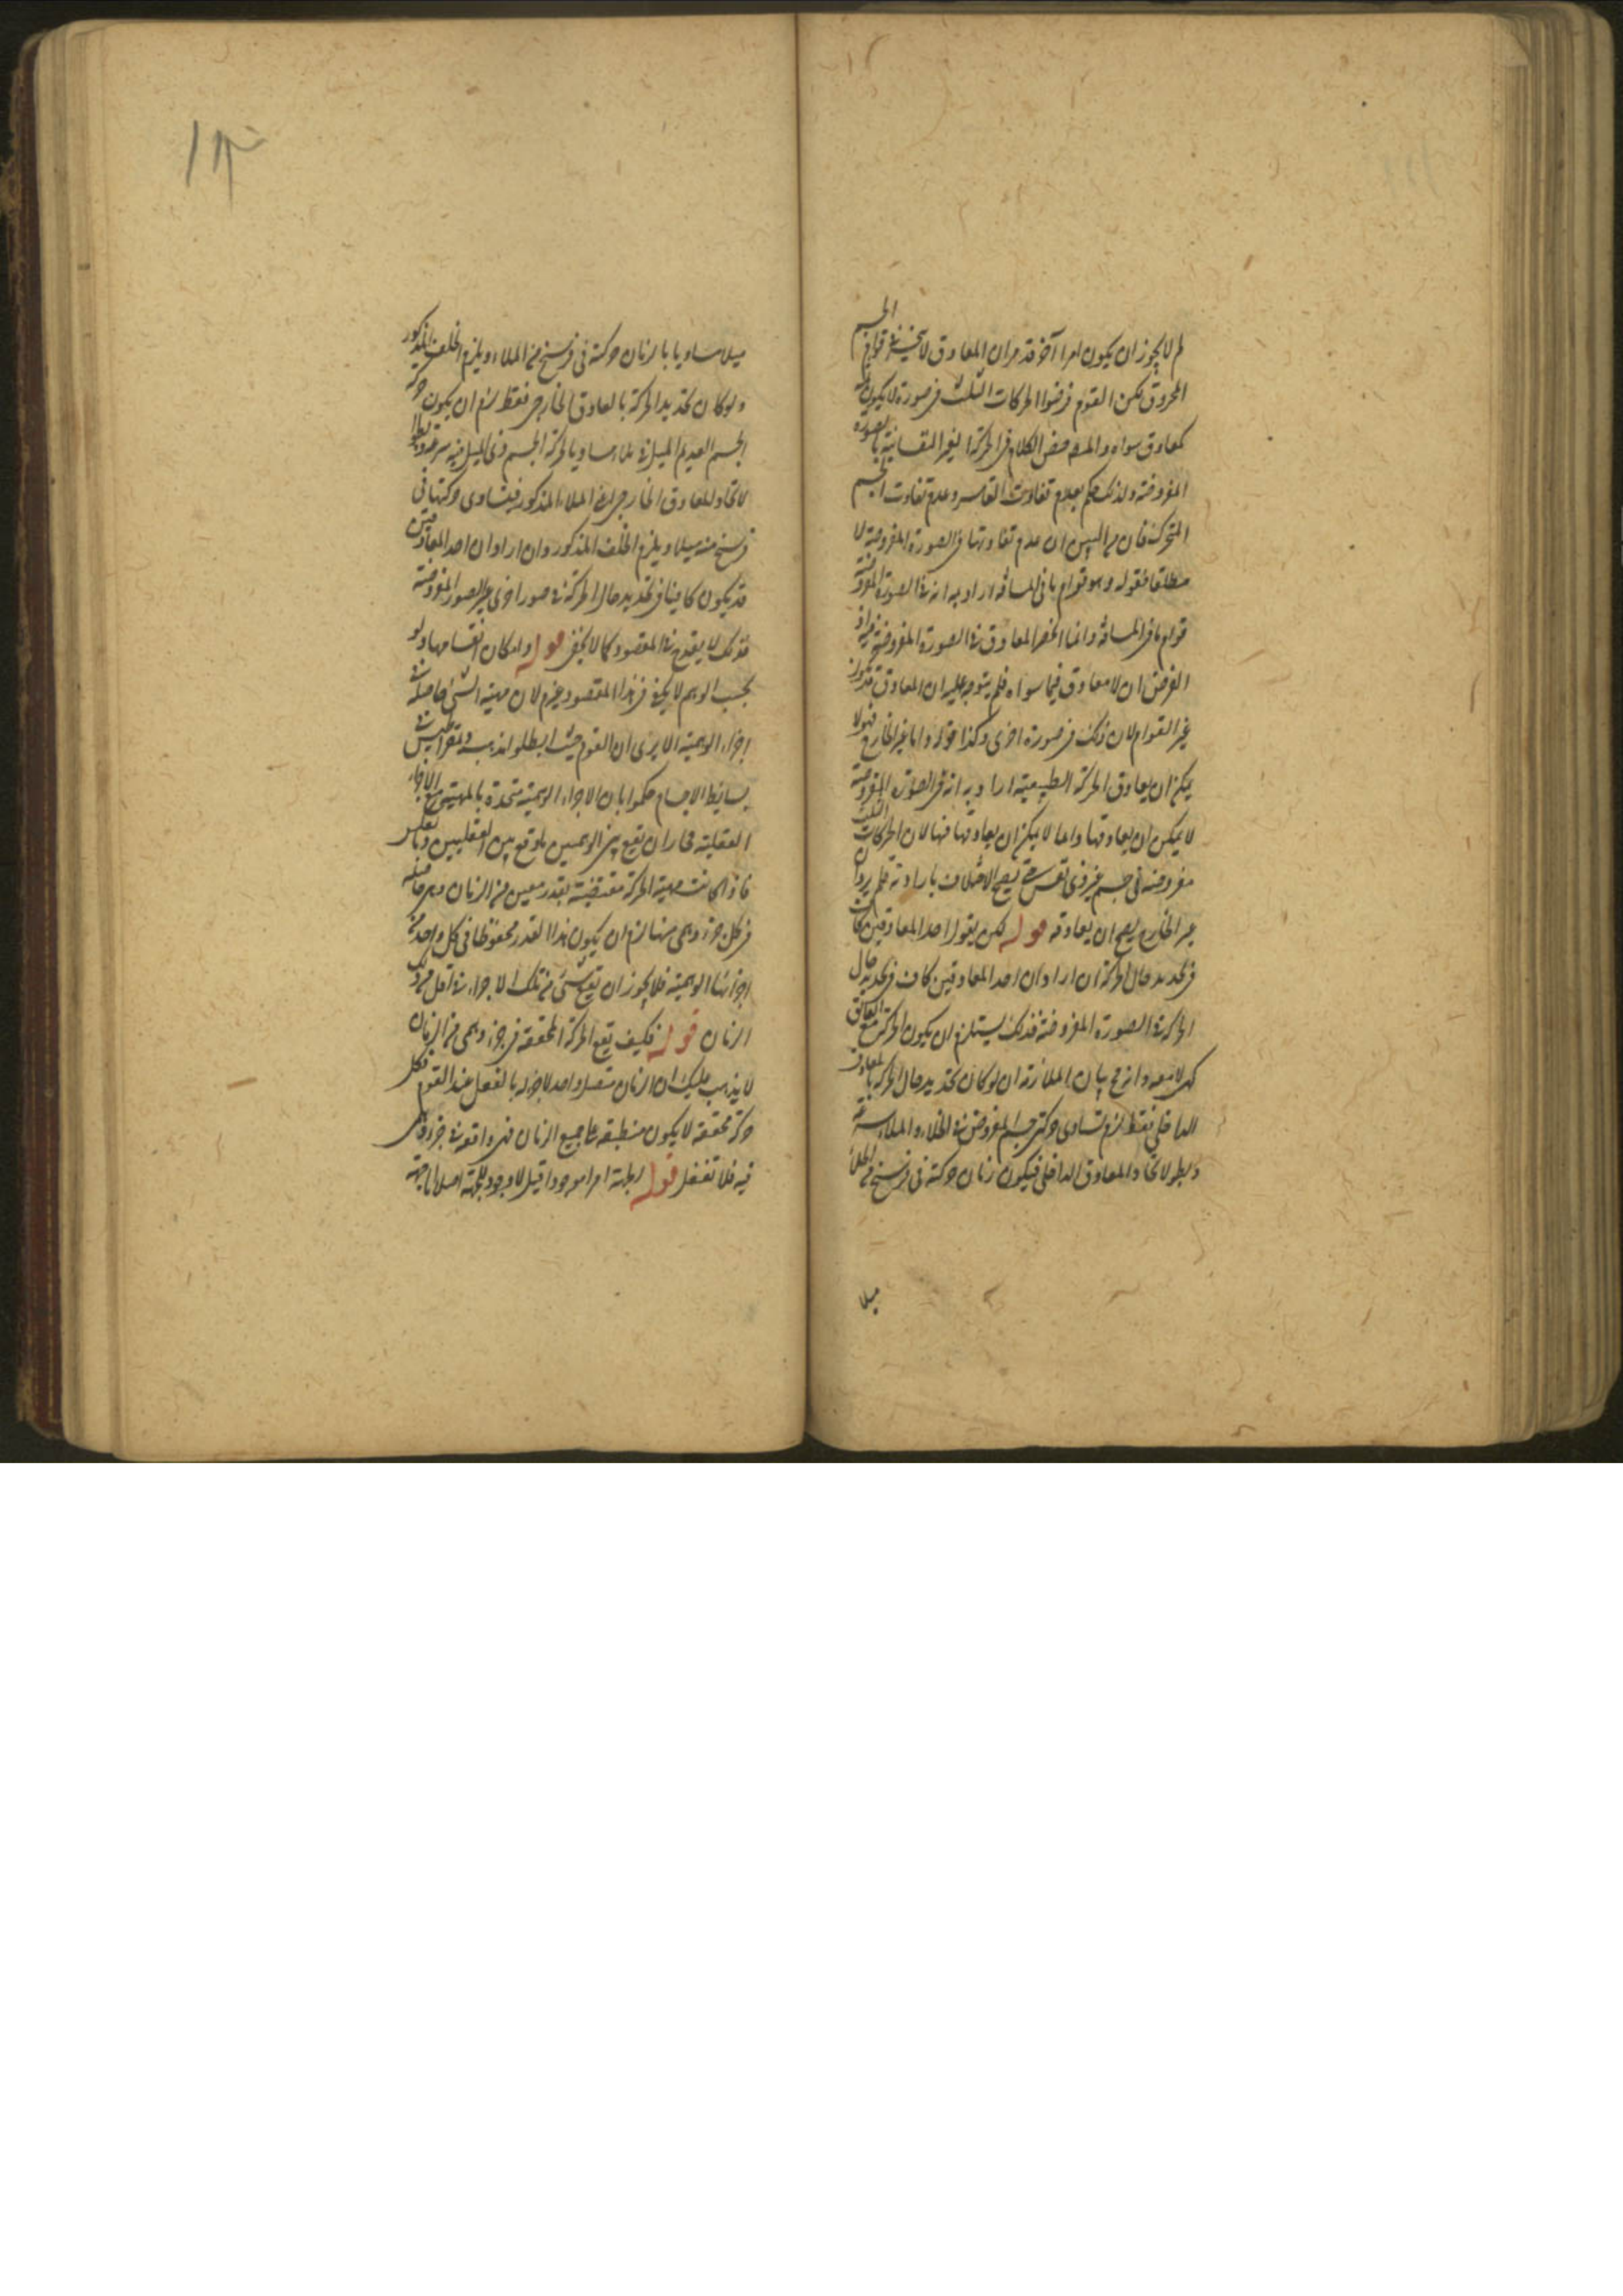 لم لا يجوز ان يكون امرا آخر قد مر ان المعاوق لا ينحصر فى قوام الجسم
المخروق لكن القوم فرضوا الحركات الثلث فى صورة لا يكون
معاوق سواه والمص خص الكلام فى الحركة الغير النفسانية بالصورة
المفروضة ولذلك حكم بعدم تفاوت القاسر وعدم تفاوت الجسم
المتحرك فان من البين ان عدم تفاوتهما فى الصورة المفروضة لا
مطلقا فقوله وهو قوام ما فى المسافة اراد به انه فى الصورة المفروضة
قوام ما فى المسافة وانما انحصر المعاوق فى الصورة المفروضة فيه اذ
الغرض ان لا معاوق فيما سواه فلم يتوجه عليه ان المعاوق قد يكون
غير القوام لان ذلك فى صورة اخرى وكذا قوله واما غير الخارج فهو لا
يمكن ان يعاوق الحركة الطبيعية اراد به انه فى الصورة المفروضة
لا يمكن ان يعاوقها وانما لا يمكن ان يعاوقها فيها لان الحركات الثلث
مفروضة فى جسم غير ذى نفس حتى يصح الاختلاف بارادته فلم يرد ان
غير الخارج يصح ان يعاوقه قوله لكن يقول احد المعاوقين كاف
فى تحديد حال الحركة ان اراد ان احد المعاوقين كاف فى تحديد حال
الحركة فى الصورة المفروضة فذلك يستلزم ان يكون الحركة مع العائق
كهى لا معه وانزح بيان الملازمة ان لو كان تحديد حال الحركة بالمعاوق
الداخلى فقط لزم تساوى حركتى جسم المفروض فى الخلاء والملاء سرعة
وبطو لاتحاد المعاوق الداخلى فيكون زمان حركته فى فرسخ من الخلاء
ميلا
ميلا مساويا بالزمان حركته فى فرسخ من الملاء ويلزم الخلف المذكور
ولو كان تحديد الحركة بالمعاوق الخارجى فقط لزم ان يكون حركة
الجسم العديم الميل فى ملاء مساويا لحركة الجسم ذى الميل فيه سرعة وبطوا
لاتحاد المعاوق الخارجى اعنى الملاء المذكور فيتساوى حركتهما فى
فرسخ منه ميلا ويلزم الخلف المذكور وان اراد ان احد المعاوقين
قد يكون كافيا فى تحديد حال الحركة فى صور اخرى غير الصور المفروضة
فذلك لا يقدح فى المقصود كما لا يخفى قوله وامكان انقسامها ولو
بحسب الوهم لا يكفى فى هذا المقصود غيره لان مهية الشئ حاصلة فى
اجزاء الوهمية الا يرى ان القوم حيث ابطلوا مذهب ذيمقراطيس فى
بسائط الاجسام حكموا بان الاجزاء الوهمية متحدة بالمهية مع الاجزاء
العقلية فجاز ان يقع بين الوهميين ما وقع بين العقليين وبالعكس
فاذا كانت مهية الحركة مقتضية بقدر معين من الزمان وهى حاصلة
فى كل جزء وهمى منها لزم ان يكون هذا القدر محفوظا فى كل واحد من
اجزائها الوهمية فلا يجوز ان يقع شئ من تلك الاجزاء فى اقل من ذلك
الزمان قوله فكيف يقع الحركة المحققة فى جزء وهمى من الزمان
لا يذهب عليك ان الزمان متصل واحد لا جزء له بالفعل عند القوم فكل
حركة محققة لا يكون منطبقة على جميع الزمان فهى واقعة فى جزء وهمى
فيه فلا تغفل قوله الجهة امرا موجودا قيل لا وجود للجهة اصلا انما جهة